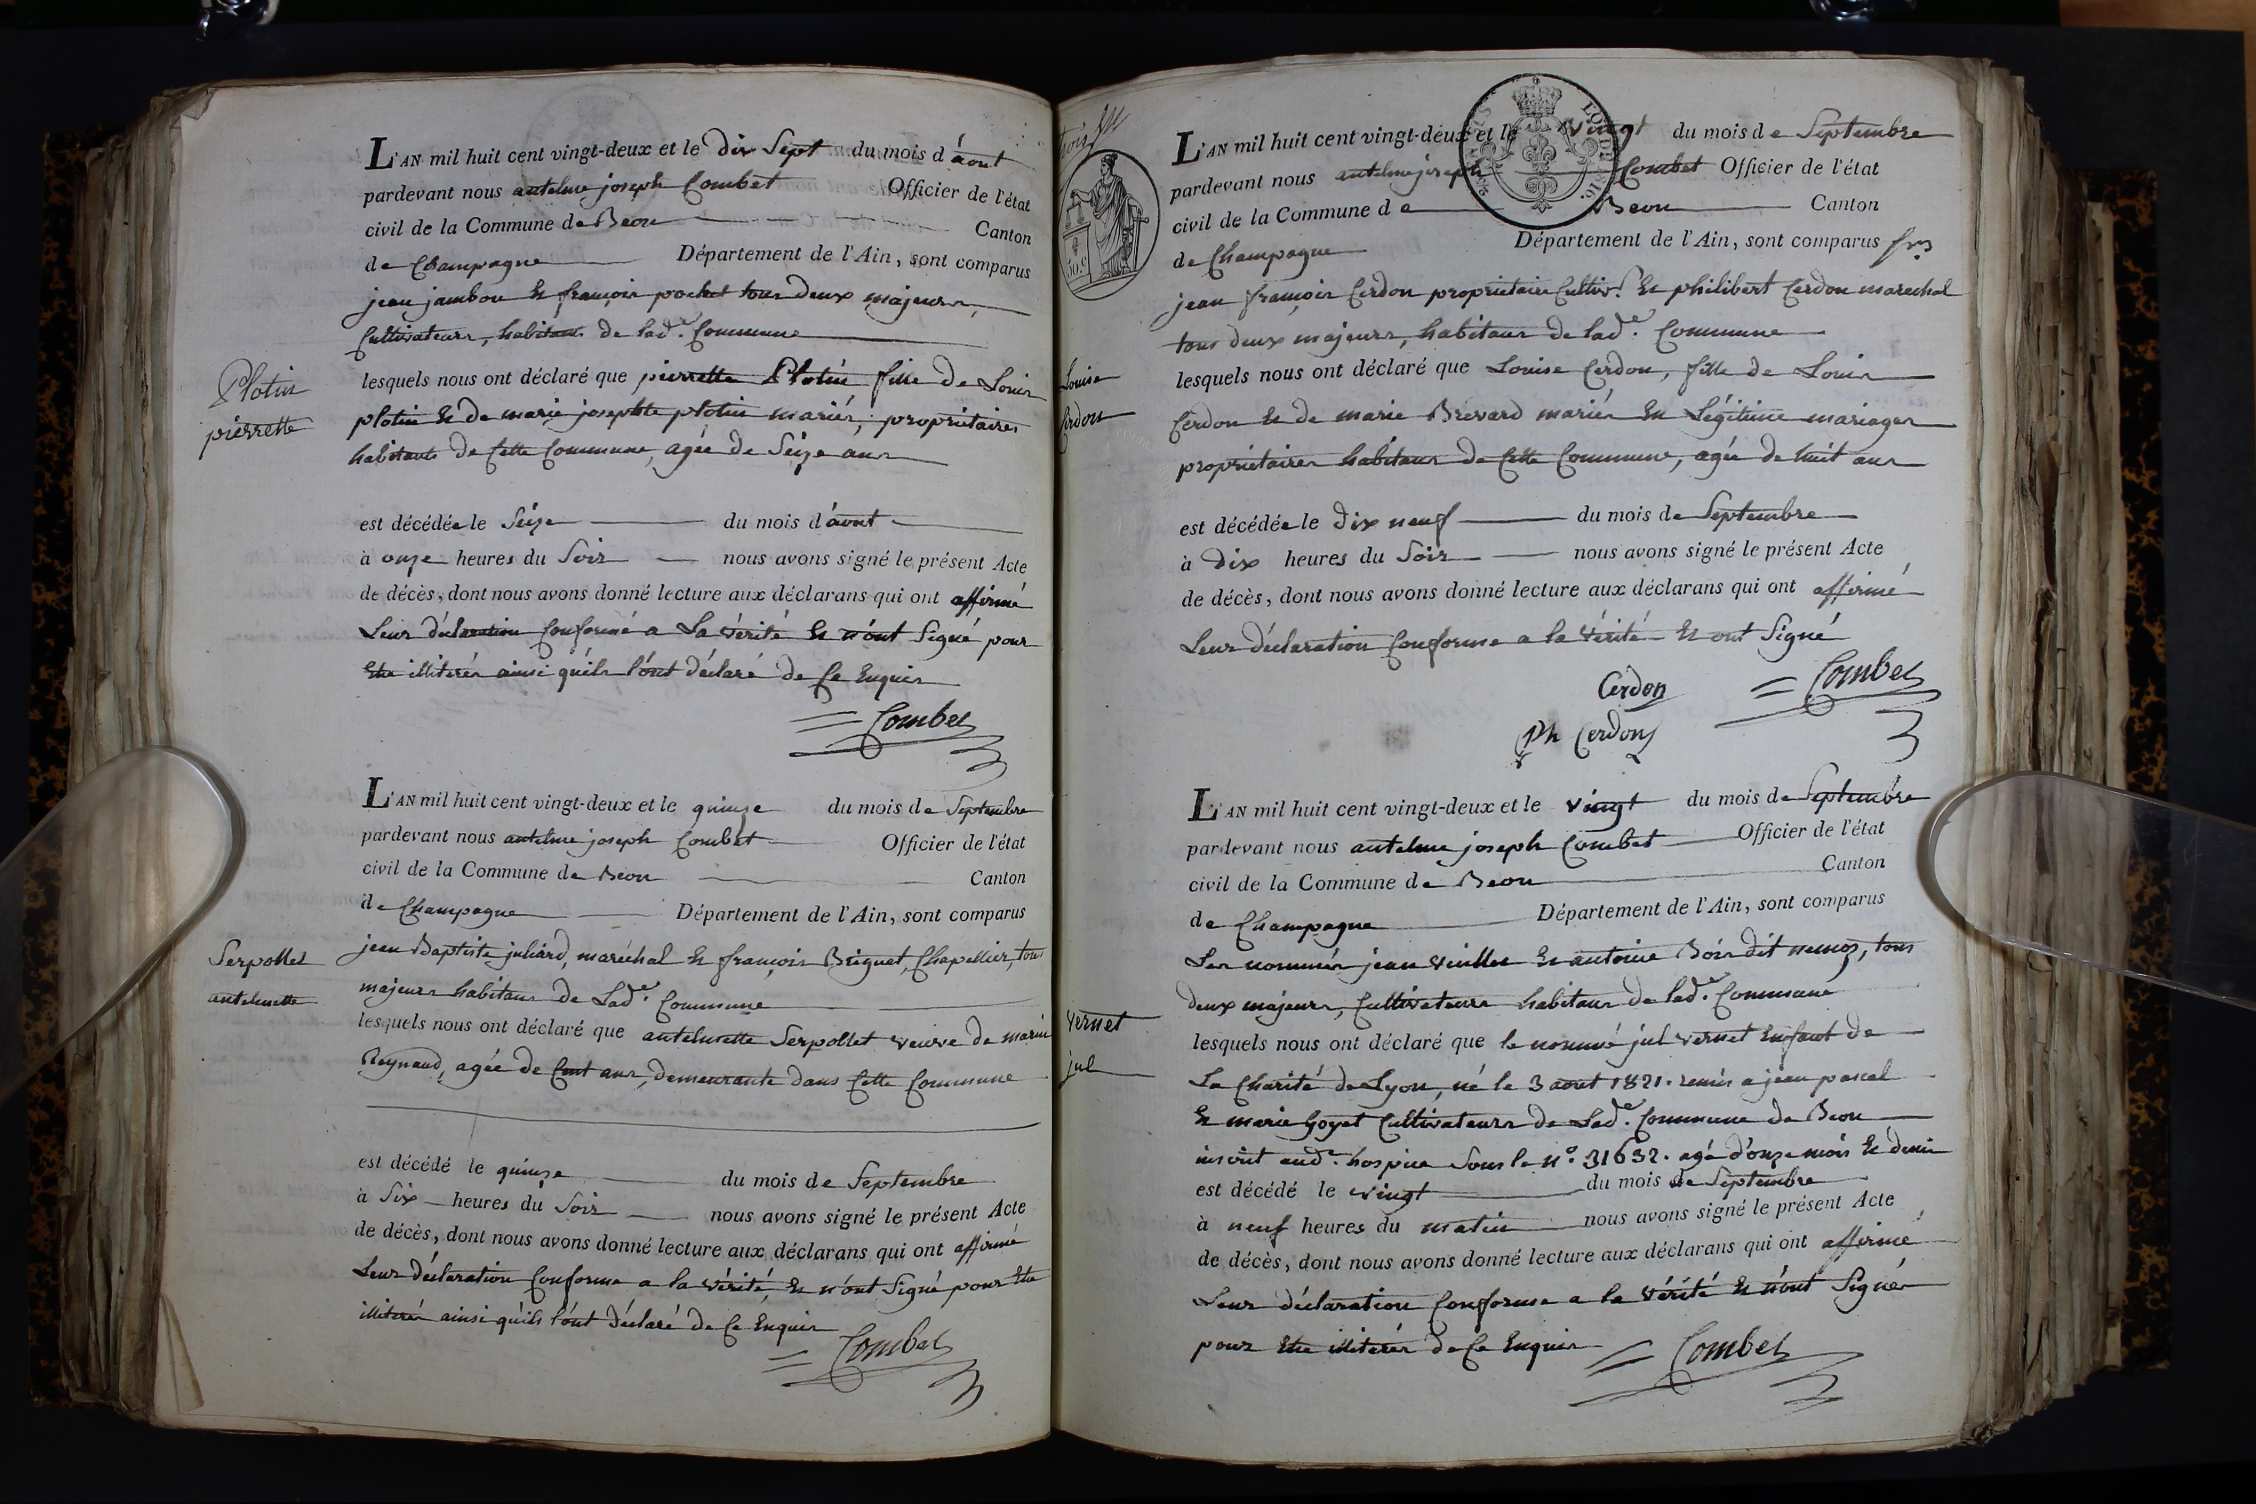 L'AN mil huit cent vingt-deux et le dix Sept du mois d'àout
pardevant nous antelme joseph Combet Officier de l'état
civil de la Commune de Beon Canton
de Champagne Département de l'Ain, sont comparus
jean jambon Et françois pochet tous deux majeurs,
Cultivateurs, habitans de lad.e Commune
Plotin
pierrette
lesquels nous ont déclaré que pierrette Plotin fille de Louis
plotin Et de marie josephte plotin mariés, propriétaires
habitants de Cette Commune, agée de Seize ans
est décédée le Seize du mois d'àout
à onze heures du Soir nous avons signé le présent Acte
de décès, dont nous avons donné lecture aux déclarans qui ont affirmé
Leur déclaration Conforme a La Vérité Et n'ont Signé pour
Etre illiterés ainsi qu'ils l'ont déclaré de Ce Enquis
Combet
L'AN mil huit cent vingt-deux et le quinze du mois de Septembre
pardevant nous antelme joseph Combet Officier de l'état
civil de la Commune de Beon Canton
de Champagne Département de l'Ain, sont comparus
Serpollet
antelmette
jean Baptiste juliard, maréchal Et françois Briquet, Chapellier, tous
majeurs habitans de Lad.e Commune
lesquels nous ont déclaré que antelmette Serpollet veuve de marin
Reynaud, agée de Cent ans, demeurante dans Cette Commune
est décédé le quinze du mois de Septembre
à Six heures du Soir nous avons signé le présent Acte
de décès, dont nous avons donné lecture aux déclarans qui ont affirmé
Leur déclaration Conforme a la vérité, Et n'ont Signé pour Etre
illiterés ainsi qu'ils l'ont déclaré de Ce Enquis
Combet
L'AN mil huit cent vingt-deux et le vingt du mois de Septembre
pardevant nous antelme joseph Combet Officier de l'état
civil de la Commune de Beon Canton
de Champagne Département de l'Ain, sont comparus
jean françois Cerdon propriétaire Cultiv.r Et philibert Cerdon marechal
tous deux majeurs, habitans de lad.e Commune
Louise
Cerdon
lesquels nous ont déclaré que Louise Cerdon, fille de Louis
Cerdon Et de marie Brevard mariés En Légitime mariages
propriétaires habitans de Cette Commune, agée de huit ans
est décédée le dix neuf du mois de Septembre
à Dix heures du Soir nous avons signé le présent Acte
de décès, dont nous avons donné lecture aux déclarans qui ont affirmé
Leur déclaration Conforme a la vérité Et ont Signé
Cerdon Combet
Ph Cerdon
L'AN mil huit cent vingt-deux et le vingt du mois de Septembre
pardevant nous antelme joseph Combet Officier de l'état
civil de la Commune de Beon Canton
de Champagne Département de l'Ain, sont comparus
Les nommés jean Veuillet Et antoine Bois dit nemoz, tous
deux majeurs, Cultivateurs habitans de lad.e Commune
Vernet
jul
lesquels nous ont déclaré que le nommé jul Vernet Enfant de
La Charité de Lyon, né le 3 aout 1821. remis a jean pascal
Et marie Goyet Cultivateurs de Lad.e Commune de Beon
inscrit aud.t hospice Sous le n.o 31632. agé d'onze mois Et demi
est décédé le vingt du mois de Septembre
à neuf heures du matin nous avons signé le présent Acte
de décès, dont nous avons donné lecture aux déclarans qui ont affirmé
Leur déclaration Conforme a la Vérité Et n'ont Signés
pour Etre illiterés de Ce Enquis
Combet